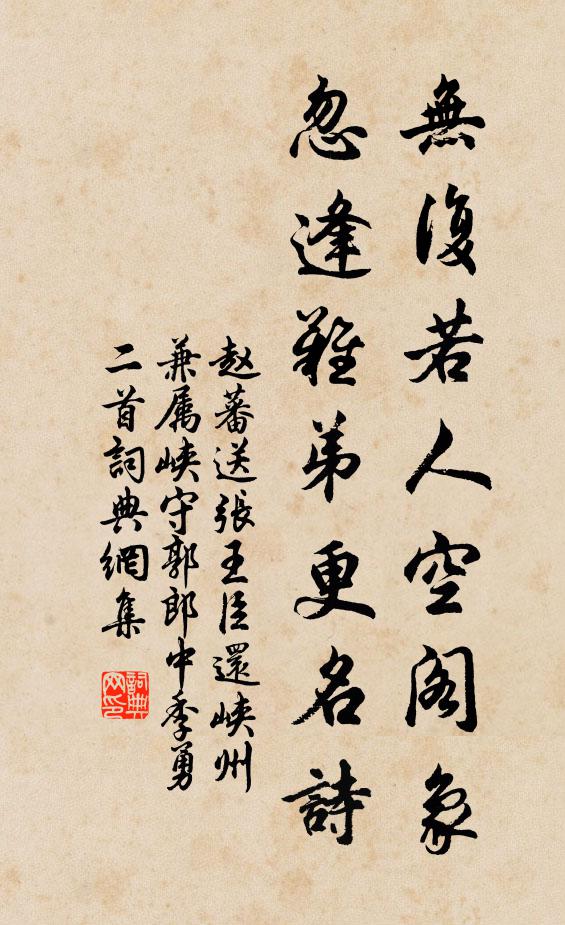 無復若人空閣象
忽逢難弟更名詩
赵蕃送張王臣還峡州
兼属峡守郭郎中季勇
二首詞典網集
詞典
网印